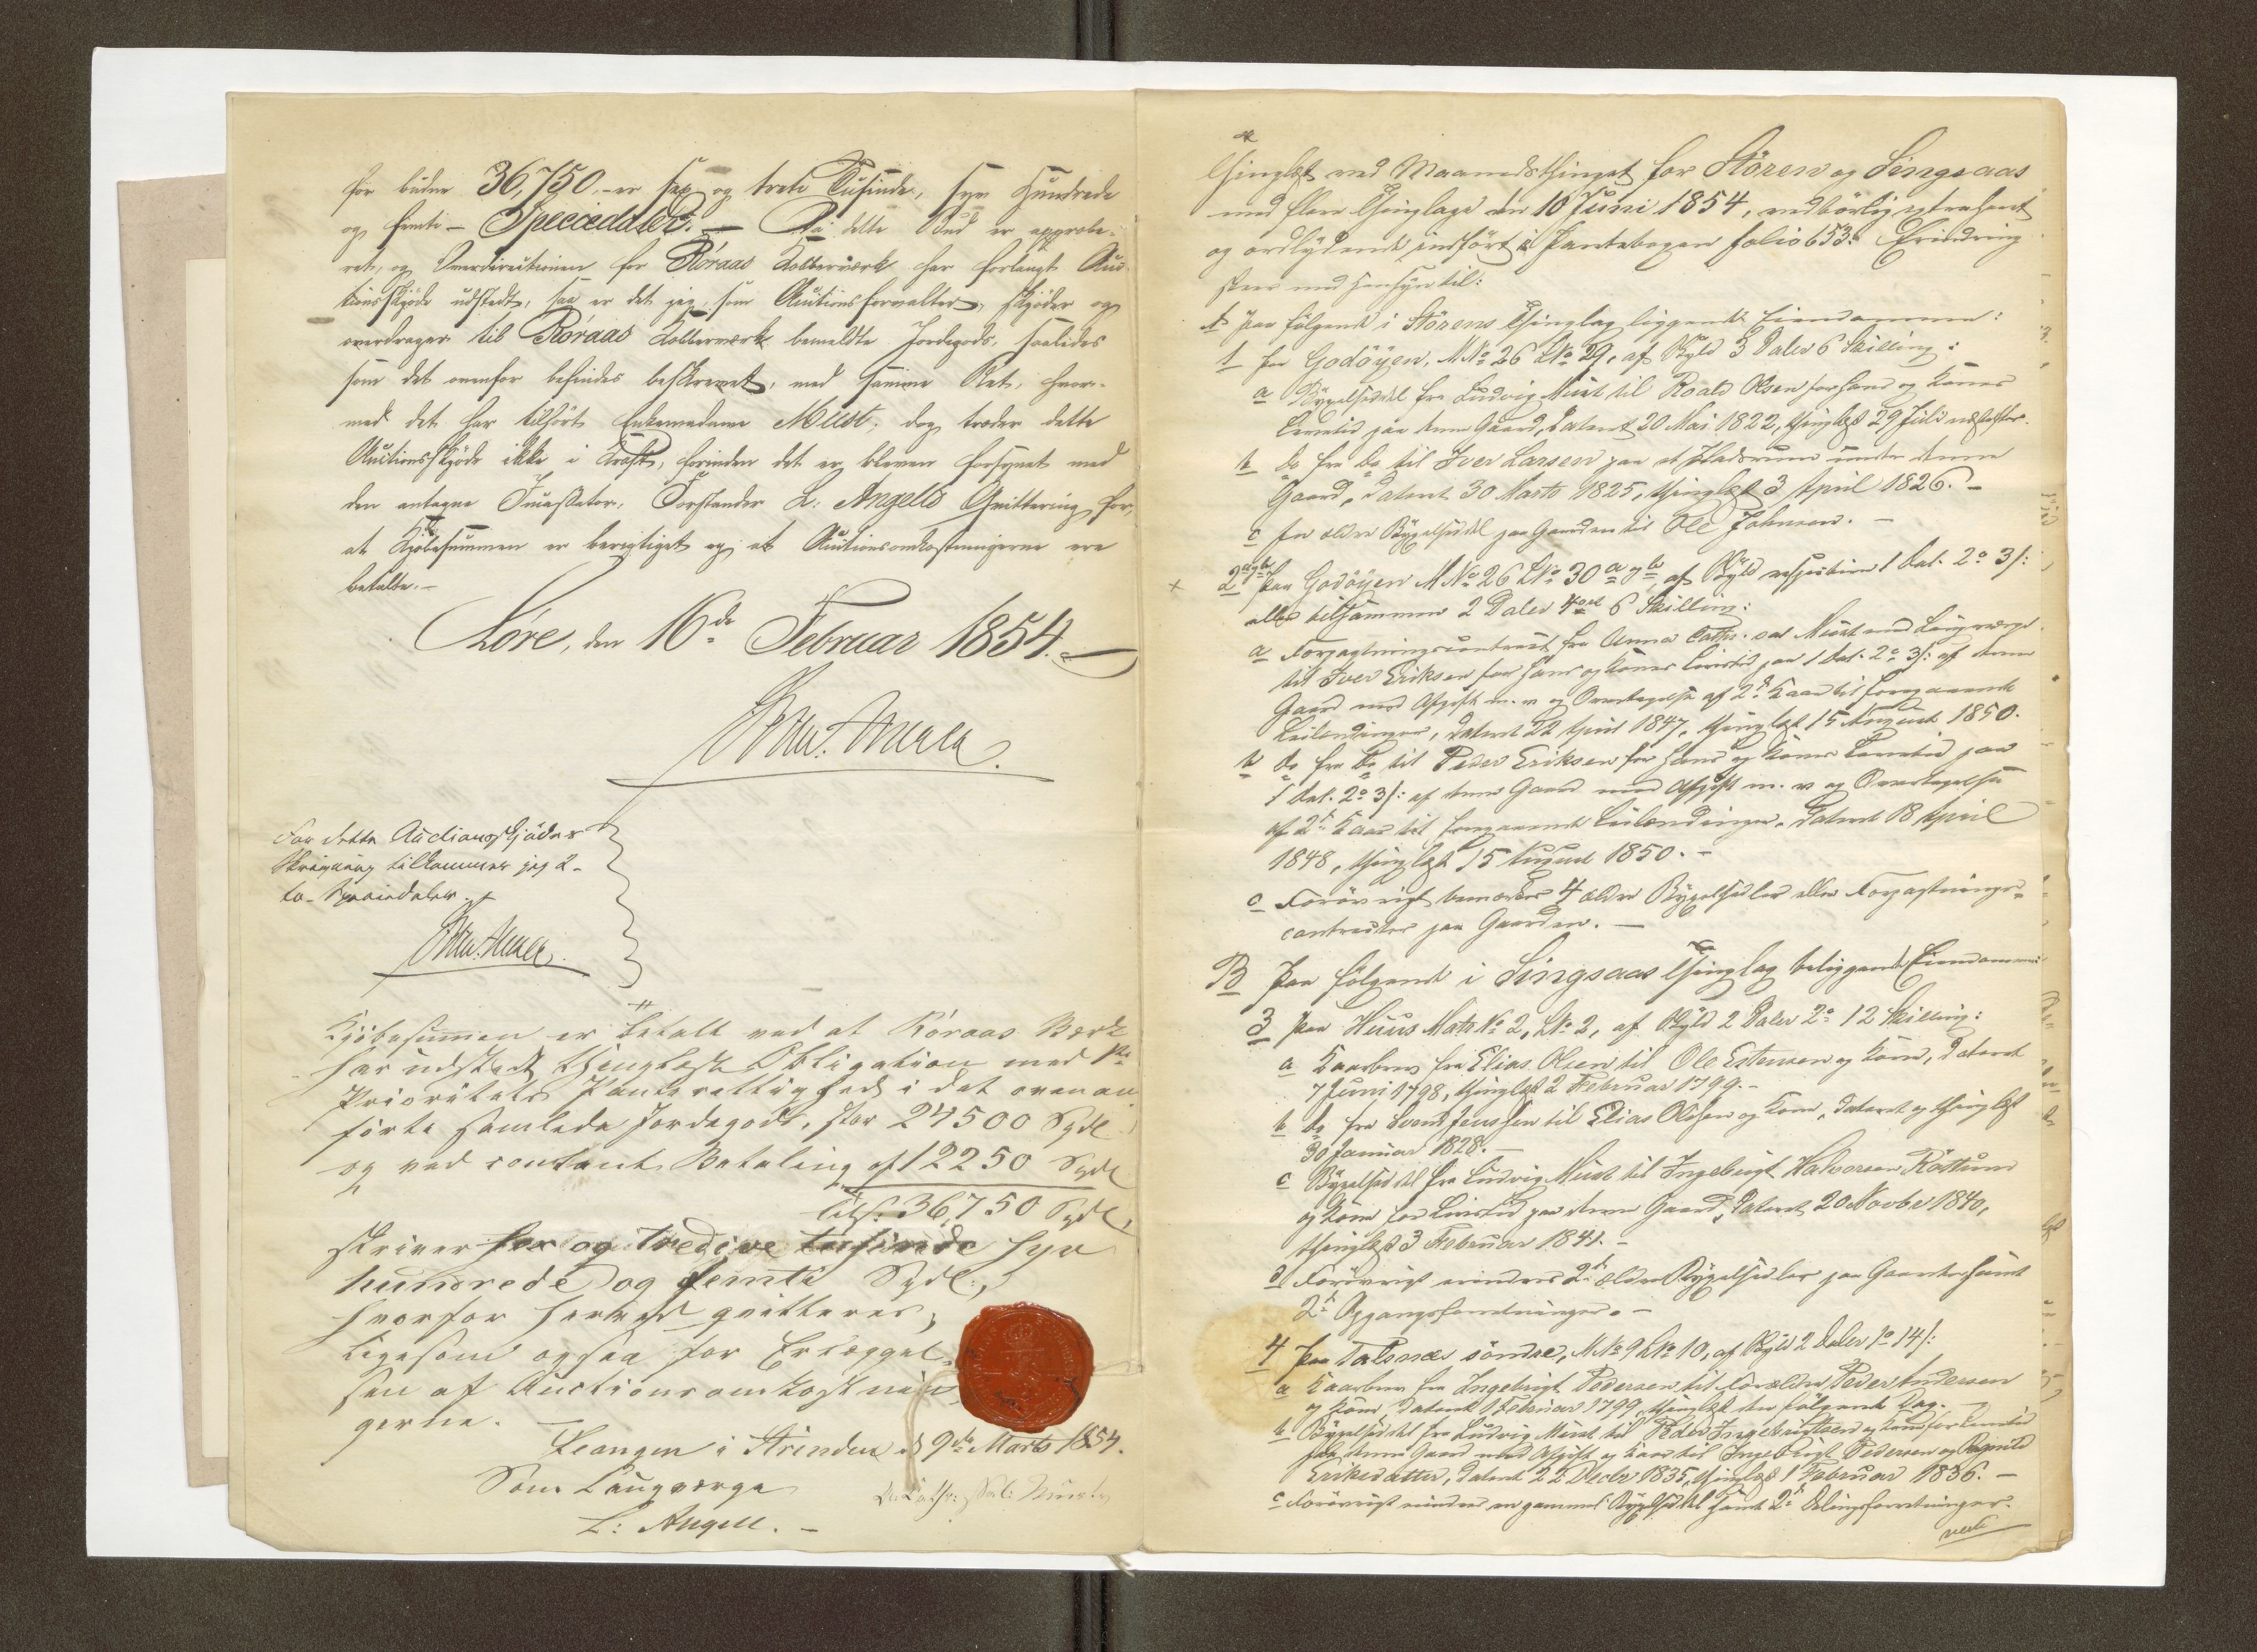 for buden 36,750 – er sex og treti Tusinde, syv Hundrede
og femti – Speciedaler. – Da dette Bud er approbe-
ret, og Overdirectionen for Röraas Kobberværk har forlangt Auc-
tionsskjöde udstedt, saa er det jeg, som Auctionsforvalter, skjöder og
overdrager til Röraas Kobberværk bemeldte Jordegods, saaledes
som det ovenfor befindes beskrevet, med samme Ret, hvor-
med det har tilhört Enkemadame Must; dog træder dette
Auctionsskjöde ikke i Kraft, forinden det er bleven forsynet med
den antagne Incassator, Forstander L: Angells Qvittering for,
at Kjöbesummen er berigtiget og at Auctionsomkostningerne ere
betalte. –
Støre, den 16de Februar 1854. –
For dette Auctionsskjödes
Skrivning tilkommer jeg 2 –
to – Speciedaler.
Kjöbesummen er betalt ved at Röraas Værk
har udstedt thinglæst Obligation med 1ste
Prioritets Panterettighed i det ovenan-
förte samlede Jordegods, stor 24500 Spdl
og ved contant Betaling af 12250 Spdl
tils: 36,750 Spdl,
skriver sex og tredive tusinde syv
hundrede og femti Spdl.,
hvorfor herved qvitteres,
ligesom ogsaa for Erlæggel-
sen af Auctionsomkostnin-
gerne. –
Leangen i Strinden d 9de Marts 1854.
Som Laugværge
L: Angell. –
Thinglæst ved Maanedsthinget for Stören og Singsaas
med flere Thinglage den 10 Juni 1854, vedbörlig extraheret
og ordlydende indfört i Pantebogen folio 653. Erindring
skeer med Hensyn til:
A Paa fölgende i Störens Thinglag liggende Eiendomme:
1 Paa Godöyen, M No 26 L No 29, af Skyld 3 Daler 6 Skilling:
a Bygselseddel fra Ludvig Must til Roald Olsen for hans og Kones
Levetid paa denne Gaard, dateret 20 Mai 1822, thinglæst 29 Juli næstefter.
b Do fra Do til Iver Larsen paa et Pladsrum under denne
Gaard, dateret 30 Marts 1825, thinglæst 3 April 1826. –
c En ældre Bygselseddel paa Gaarden til Ole Johnsen. –
2 a og b Paa Godöyen M No 26 L No 30 a og b, af Skyld respective 1 Dal. 2 o 3 s:
eller tilsammen 2 Daler 4 ort 6 Skilling:
a Forpagtningscontract fra Anna Cathr. sal Must med Laugværge
til Iver Eriksen for hans og Kones Levetid paa 1 Dal. 2 o 3 s: af denne
Gaard med Afgift m. v og Overtagelse af 2de Kaar til foregaaende
Leilendinger, dateret 22 April 1847, thinglæst 15 August 1850.
b Do fra Do til Peder Eriksen for hans og Kones Levetid paa
1 Dal. 2 o 3 s: af denne Gaard med Afgift m. v og Overtagelse
af 2de Kaar til foregaaende Leilendinger, dateret 18 April
1848, thinglæst 15 August 1850. –
c Forövrigt bemærkes 4 ældre Bygselsedler eller Forpagtnings-
contracter paa Gaarden. –
B Paa fölgende i Singsaas Thinglag beliggende Eiendomme
3 Paa Huus Matr No 2, L No 2, af Skyld 2 Daler 2 o 12 Skilling:
a Kaarbrev fra Elias Olsen til Ole Estensen og Kone, dateret
7 Juni 1798, thinglæst 2 Februar 1799. –
b Do fra Svend Jenssen til Elias Olsen og Kone, dateret og thinglæst
30 Januar 1828. –
c Bygselseddel fra Ludvig Must til Ingebrigt Halvorsen Röttum
og Kone for Levetid paa denne Gaard, dateret 20 Novbr 1840,
thinglæst 3 Februar 1841. –
d Forövrigt erindres 2de ældre Bygselsedler paa Gaarden samt
2de Opgangsforretninger. –
4 Paa Talsnæs söndre, M No 9 L No 10, af Skyld 2 Daler 1 o 14 s:
a Kaarbrev fra Ingebrigt Pedersen til Forældre Peder Andersen
og Kone, dateret 1 Februar 1799, thinglæst den fölgende Dag. –
b Bygselseddel fra Ludvig Must til Peder Ingebrigtsen og Kone for Levetid
paa denne Gaard med Afgift og Kaar til Ingebrigt Pedersen og Ragnild
Eriksdatter, dateret 22 Decbr 1835, thinglæst 1 Februar 1836. –
c Forövrigt erindres en gammel Bygselseddel samt 2de Delingsforretninger.
verte